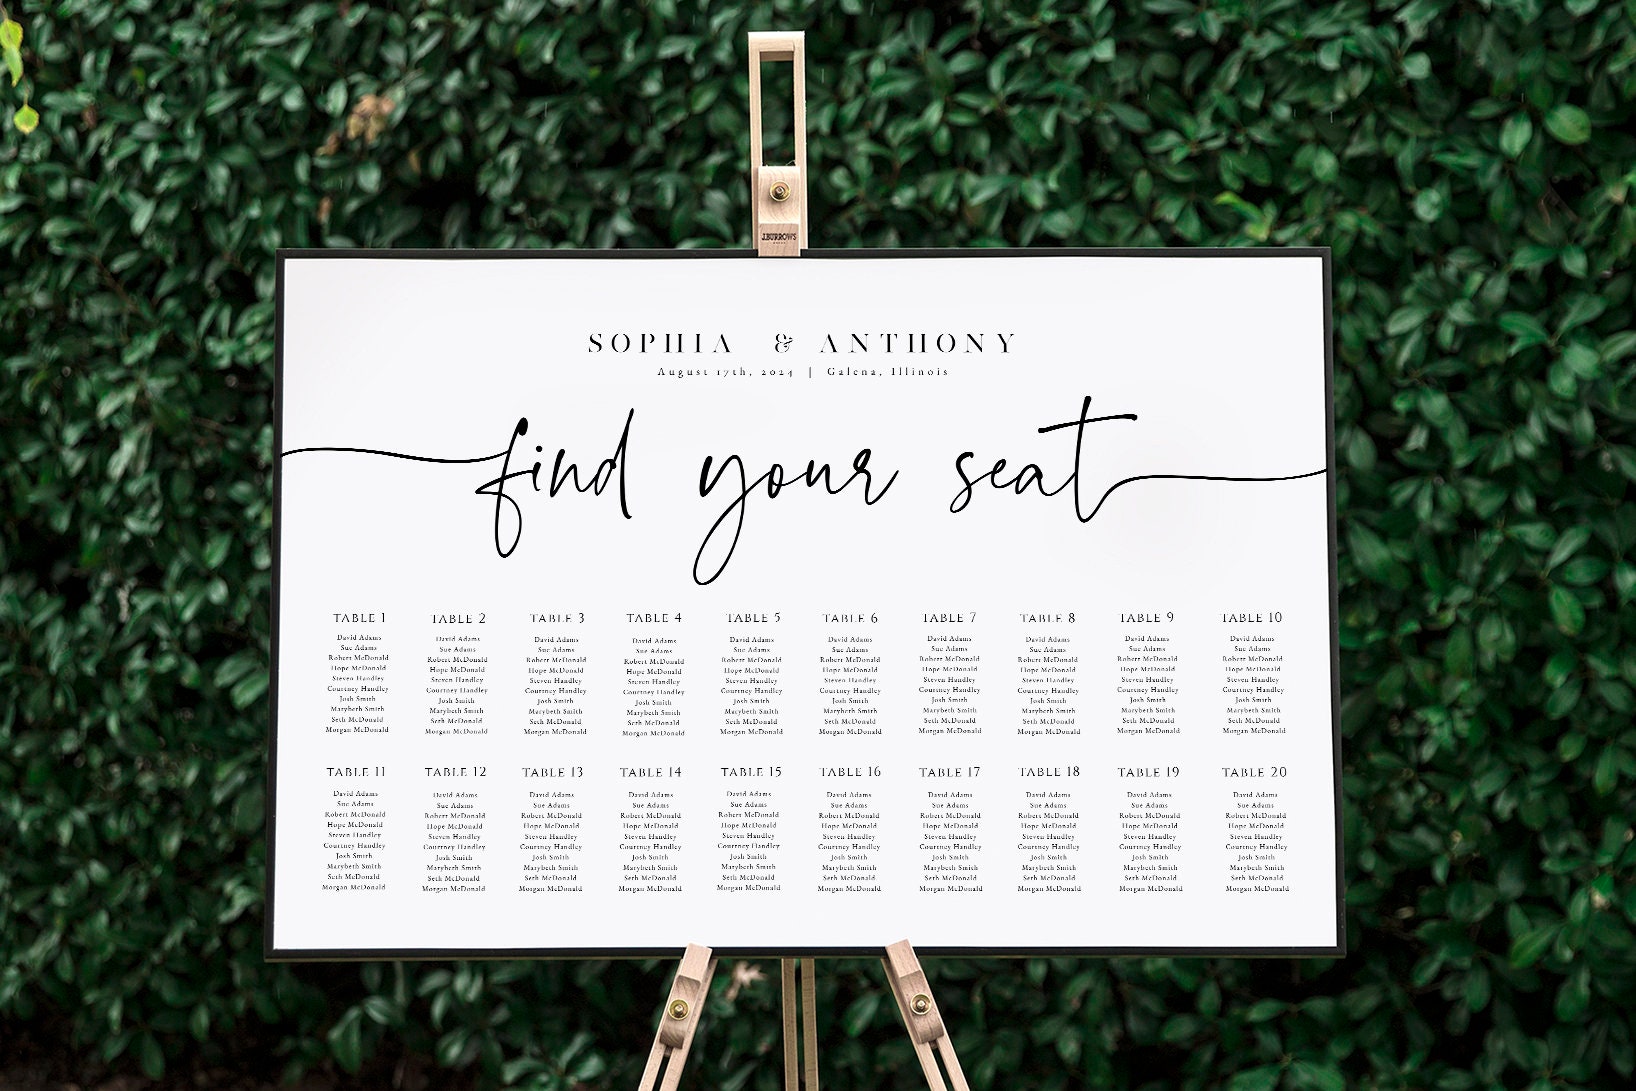 J.BURROWS
SOPHIA & ANTHONY
August 17th, 2024 | Galena, Illinois
find your seat
TABLE 1
David Adams
Sue Adams
Robert McDonald
Hope McDonald
Steven Handley
Courtney Handley
Josh Smith
Marybeth Smith
Seth McDonald
Morgan McDonald
TABLE 2
David Adams
Sue Adams
Robert McDonald
Hope McDonald
Steven Handley
Courtney Handley
Josh Smith
Marybeth Smith
Seth McDonald
Morgan McDonald
TABLE 3
David Adams
Sue Adams
Robert McDonald
Hope McDonald
Steven Handley
Courtney Handley
Josh Smith
Marybeth Smith
Seth McDonald
Morgan McDonald
TABLE 4
David Adams
Sue Adams
Robert McDonald
Hope McDonald
Steven Handley
Courtney Handley
Josh Smith
Marybeth Smith
Seth McDonald
Morgan McDonald
TABLE 5
David Adams
Sue Adams
Robert McDonald
Hope McDonald
Steven Handley
Courtney Handley
Josh Smith
Marybeth Smith
Seth McDonald
Morgan McDonald
TABLE 6
David Adams
Sue Adams
Robert McDonald
Hope McDonald
Steven Handley
Courtney Handley
Josh Smith
Marybeth Smith
Seth McDonald
Morgan McDonald
TABLE 7
David Adams
Sue Adams
Robert McDonald
Hope McDonald
Steven Handley
Courtney Handley
Josh Smith
Marybeth Smith
Seth McDonald
Morgan McDonald
TABLE 8
David Adams
Sue Adams
Robert McDonald
Hope McDonald
Steven Handley
Courtney Handley
Josh Smith
Marybeth Smith
Seth McDonald
Morgan McDonald
TABLE 9
David Adams
Sue Adams
Robert McDonald
Hope McDonald
Steven Handley
Courtney Handley
Josh Smith
Marybeth Smith
Seth McDonald
Morgan McDonald
TABLE 10
David Adams
Sue Adams
Robert McDonald
Hope McDonald
Steven Handley
Courtney Handley
Josh Smith
Marybeth Smith
Seth McDonald
Morgan McDonald
TABLE 11
David Adams
Sue Adams
Robert McDonald
Hope McDonald
Steven Handley
Courtney Handley
Josh Smith
Marybeth Smith
Seth McDonald
Morgan McDonald
TABLE 12
David Adams
Sue Adams
Robert McDonald
Hope McDonald
Steven Handley
Courtney Handley
Josh Smith
Marybeth Smith
Seth McDonald
Morgan McDonald
TABLE 13
David Adams
Sue Adams
Robert McDonald
Hope McDonald
Steven Handley
Courtney Handley
Josh Smith
Marybeth Smith
Seth McDonald
Morgan McDonald
TABLE 14
David Adams
Sue Adams
Robert McDonald
Hope McDonald
Steven Handley
Courtney Handley
Josh Smith
Marybeth Smith
Seth McDonald
Morgan McDonald
TABLE 15
David Adams
Sue Adams
Robert McDonald
Hope McDonald
Steven Handley
Courtney Handley
Josh Smith
Marybeth Smith
Seth McDonald
Morgan McDonald
TABLE 16
David Adams
Sue Adams
Robert McDonald
Hope McDonald
Steven Handley
Courtney Handley
Josh Smith
Marybeth Smith
Seth McDonald
Morgan McDonald
TABLE 17
David Adams
Sue Adams
Robert McDonald
Hope McDonald
Steven Handley
Courtney Handley
Josh Smith
Marybeth Smith
Seth McDonald
Morgan McDonald
TABLE 18
David Adams
Sue Adams
Robert McDonald
Hope McDonald
Steven Handley
Courtney Handley
Josh Smith
Marybeth Smith
Seth McDonald
Morgan McDonald
TABLE 19
David Adams
Sue Adams
Robert McDonald
Hope McDonald
Steven Handley
Courtney Handley
Josh Smith
Marybeth Smith
Seth McDonald
Morgan McDonald
TABLE 20
David Adams
Sue Adams
Robert McDonald
Hope McDonald
Steven Handley
Courtney Handley
Josh Smith
Marybeth Smith
Seth McDonald
Morgan McDonald